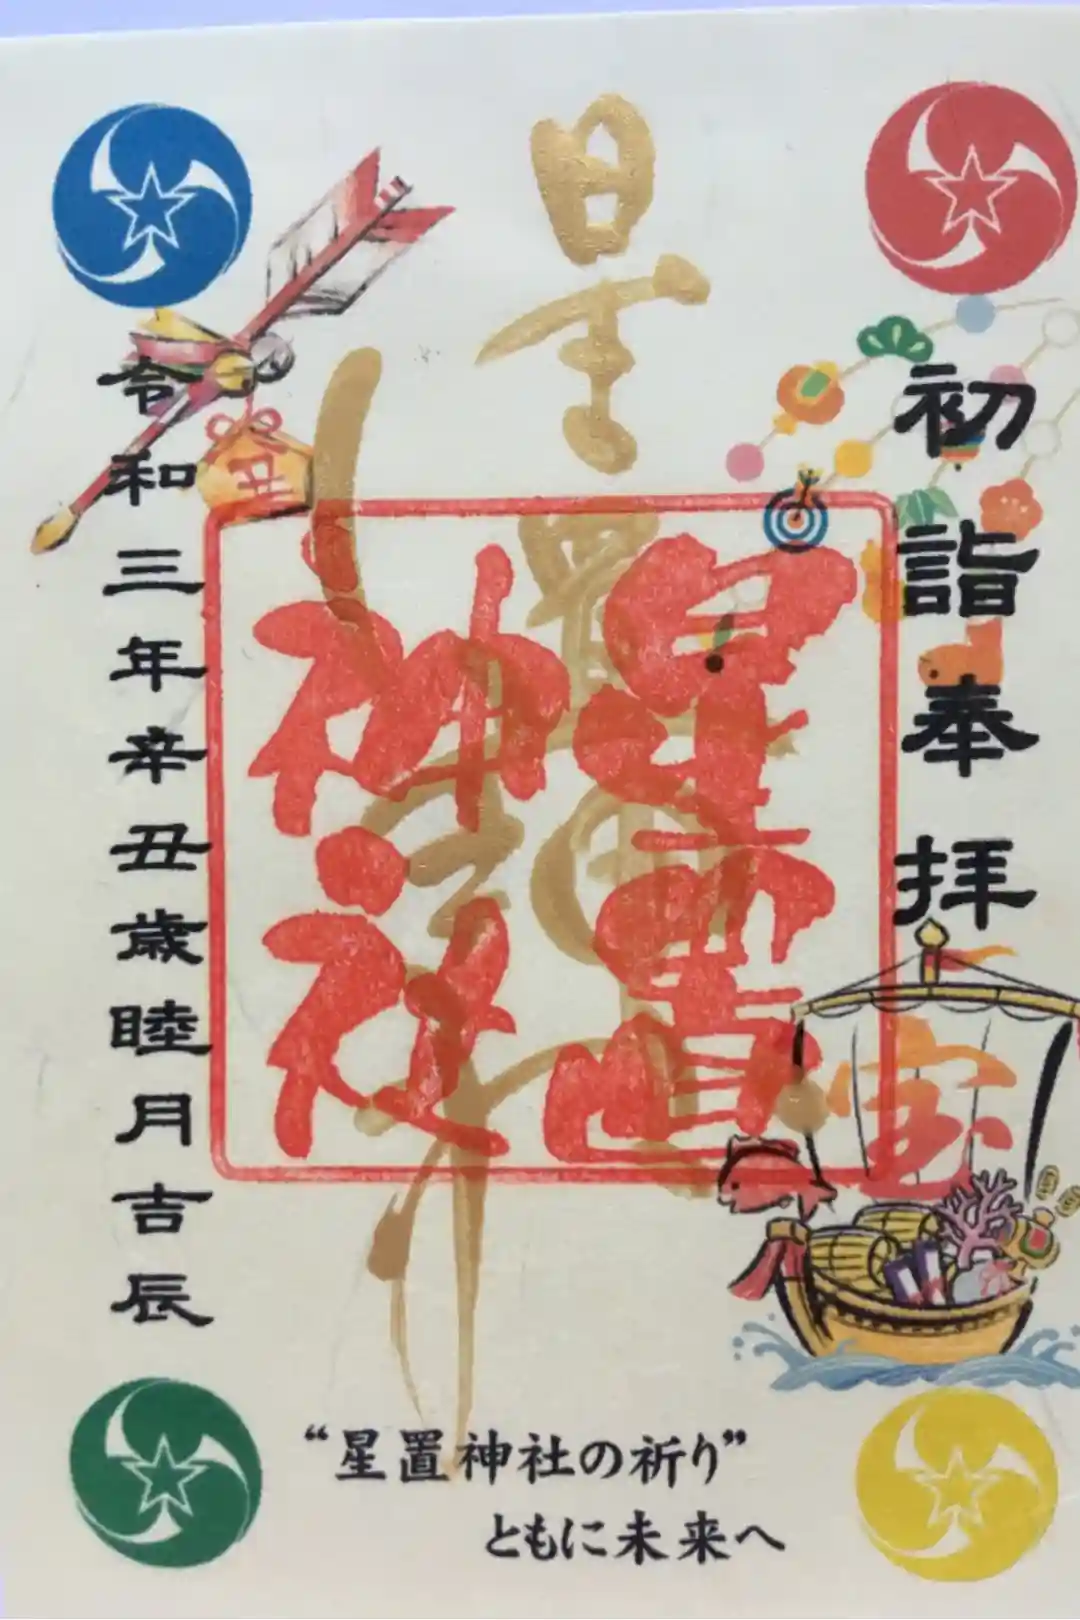 初詣奉拝
宝
星置神社
星置神社
丑
令和三年辛丑歳睦月吉辰
“星置神社の祈り”
ともに未来へ